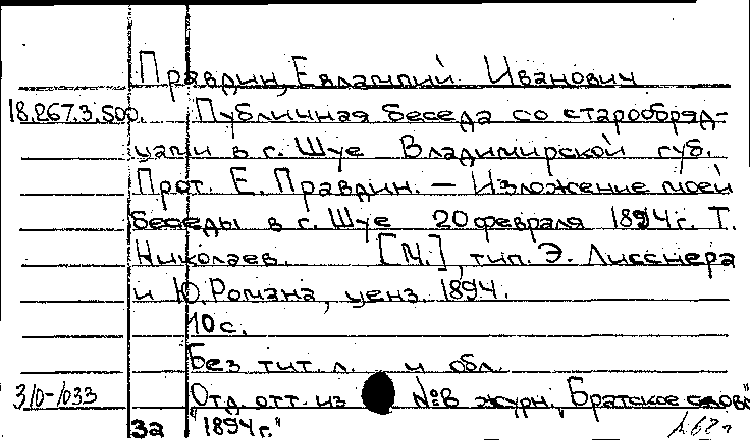 Правдин, Евлампий Иванович
18.267.3.500. Публичная беседа со старообряд-
цами в г. Шуе Владимирской губ.
Прот. Е. Правдин. — Изложение моей
беседы в г. Шуе 20 февраля 1894 г. Т.
Николаев. [М.], тип. Э. Лисснера
и Ю. Романа, ценз. 1894.
10 с.
Без тит. л. и обл.
310-1033 Отд. отт. из №8 журн. „Братское слово"
за "1894 г."